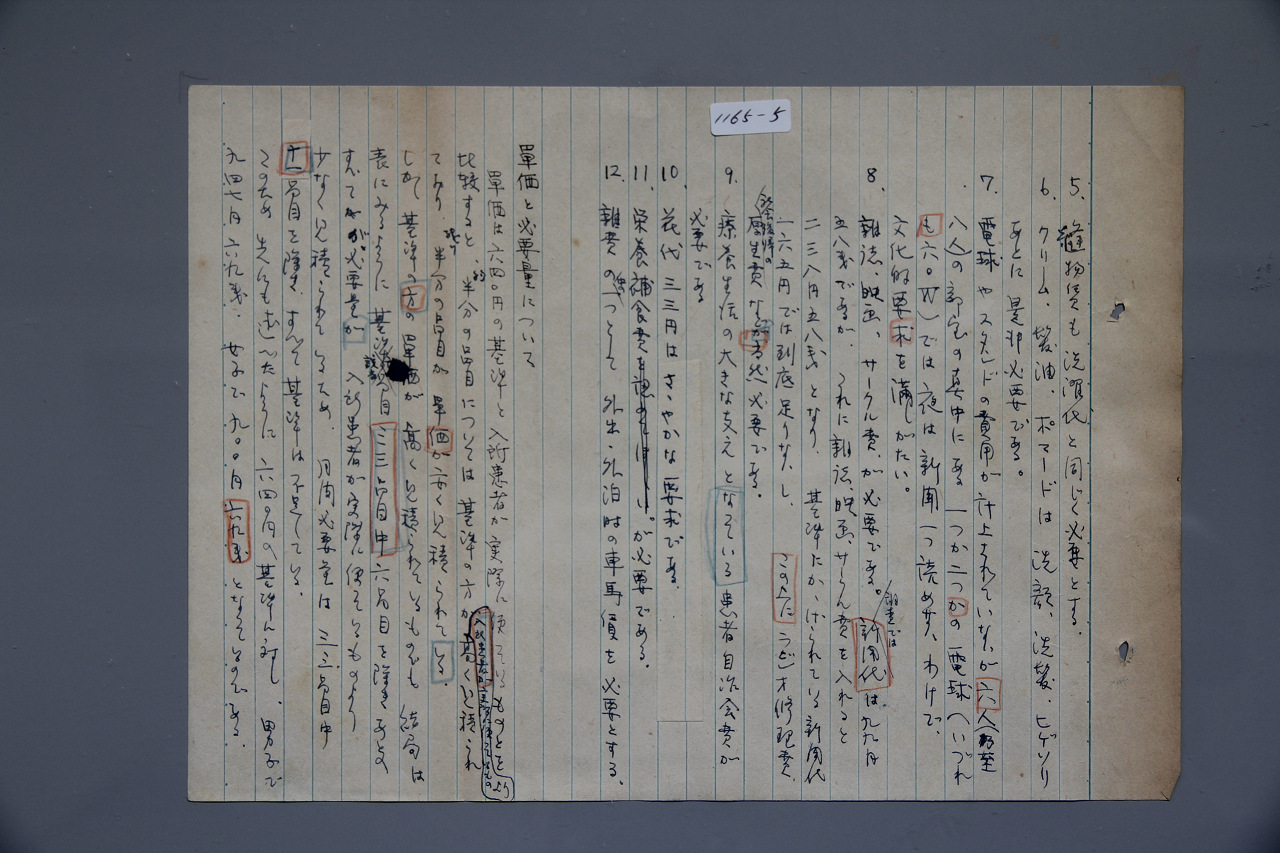 1165-5
5. 縫物賃も洗濯代と同じく必要とする。
6. クリーム、髪油、ポマードは洗顔、洗髪、ヒゲソリ
あとに是非必要である。
7. 電球やスタンドの費用が計上されていないが六人(乃至
八人)の部屋の真中にある一つか二つかの電球(いづれ
も六〇W)では夜は新聞一つ読めないわけで、
文化的要求を満しがたい。
8. 雑誌、映画、サークル費が必要である。新聞代は九九円
調査では
五八銭であるが、これに雑誌、映画、サークル費を入れると
二三八円五八銭となり、基準にかゝげられている新聞代
一六五円では到底足りないし、この上に ラジオ修理費、
厚生費などが当然必要である。
9. 療養生活の大きな支えとなっている患者自治会費が
必要である
10. 花代 三三円はさゝやかな要求である。
11. 栄養補食費が必要である。
12. 雑費の一つとして 外出・外泊時の車馬賃を必要とする。
單価と必要量について
單価は六四〇円の基準と入所患者が実際に使っているものとを
比較すると、半分の品目については基準の方が高く見積られ
入所患者が実際に使ってるものより
ており、半分の品目が單価が安く見積られている。
しかし基準の方の單価が高く見積られているものでも結局は
表にみるように基準品目三三品目中六品目を除きあとは
すべてが必要量が入所患者が実際に使っているものより
少なく見積られているため、月間必要量は三三品目中
十一品目を除き、すべて基準は不足している。
このため先にも述べたように六四〇円の基準に対し、男子で
九四七円六九銭、女子で九〇〇円六九銭となっているのである。